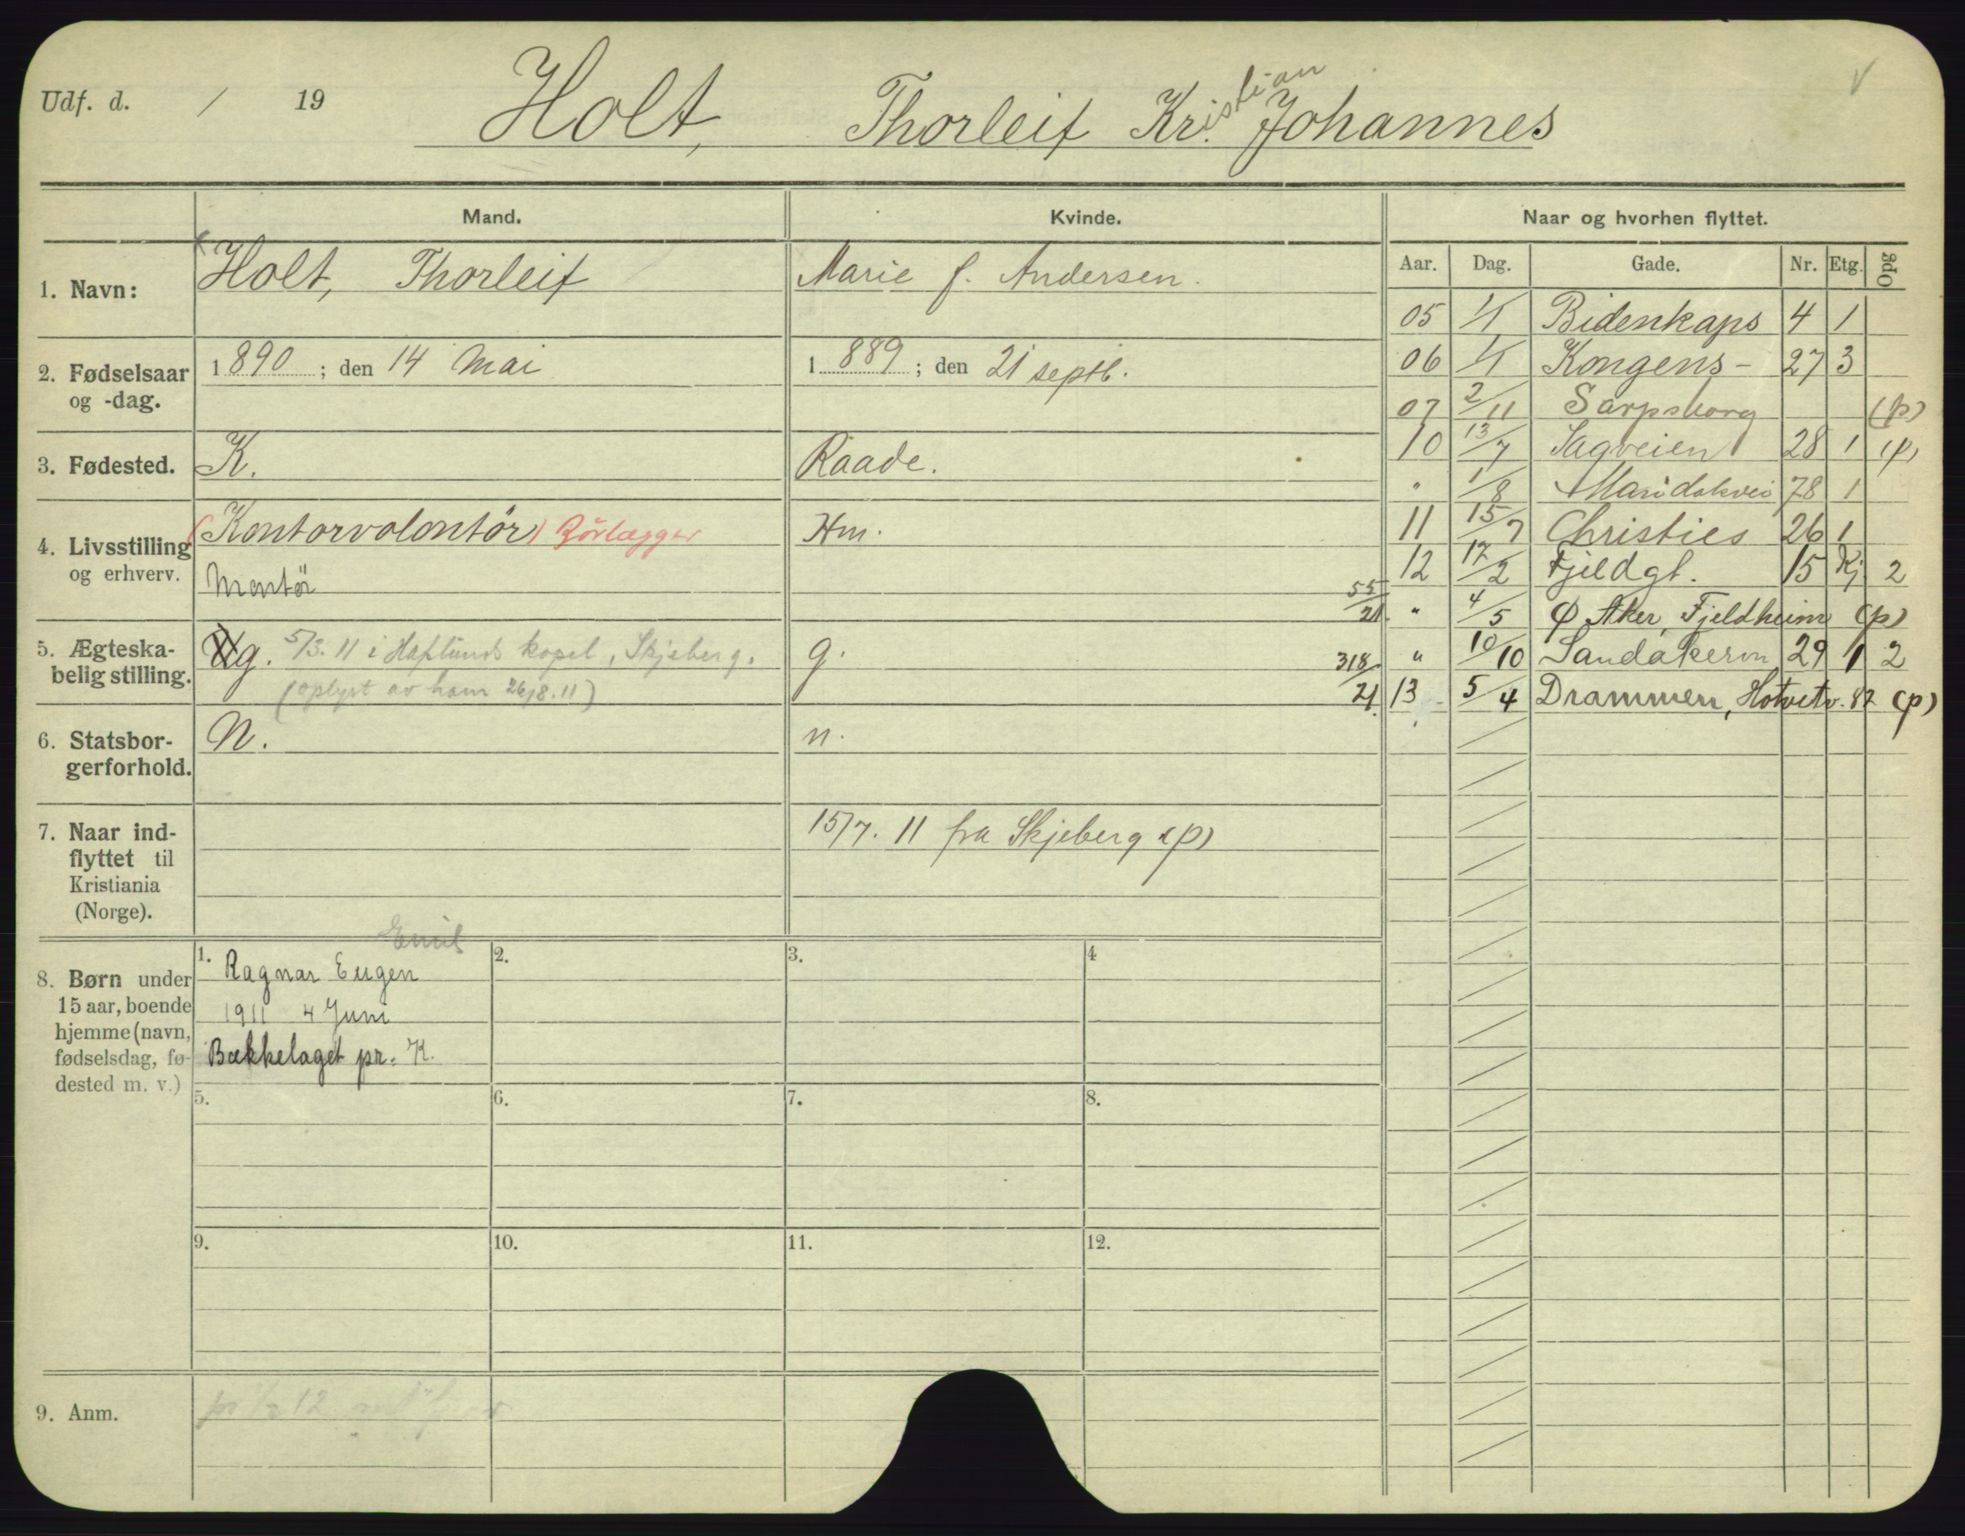 Udf. d. / 19
Holt, Thorleif Kristian Johannes
Mand. Kvinde. Naar og hvorhen flyttet.
Aar. Dag. Gade. Nr. Etg. Opg
1. Navn: Holt, Thorleif Marie f. Andersen.
2. Fødselsaar og -dag. 1890; den 14 Mai 1889; den 21 septb.
3. Fødested. K. Raade.
4. Livsstilling og erhverv. (Kontorvolontør) Rørlægger Hm.
Montør
5. Ægteska-
belig stilling. Ug. 5/3. 11 i Haflunds kapel, Skjeberg. g.
(oplyst av ham 26/8. 11)
6. Statsbor-
gerforhold. N. n.
7. Naar ind-
flyttet til
Kristiania
(Norge).
15/7. 11 fra Skjeberg (p)
05 1/1 Bidenkaps 4 1
06 1/1 Kongens- 27 3
07 2/11 Sarpsborg (p)
10 13/7 Sagveien 28 1 (p)
" 1/8 Maridalsvei 78 1
11 15/7 Christies 26 1
12 17/2 Fjeldgt. 15 Kj 2
55/21. " 4/5 Aker, Fjeldheim (p)
318/21. " 10/10 Sandakervn 29 1 2
13 5/4 Drammen, Hotvetv. 87 (p)
8. Børn under
15 aar, boende
hjemme (navn,
fødselsdag, fø-
dested m. v.)
1. Emil
Ragnar Eugen
1911 4 Juni
Bækkelaget pr. K.
2.
3.
4
5.
6.
7.
8.
9.
10.
11.
12.
9. Anm.